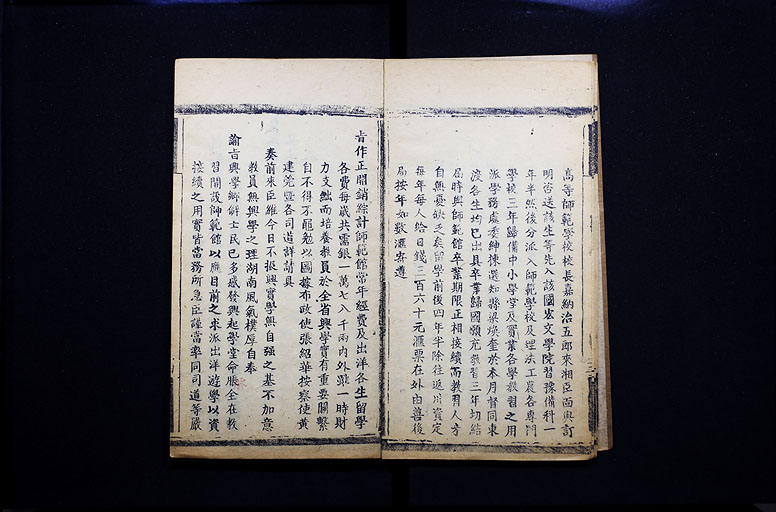 高等師範學校校長嘉納治五郎來湘臣面與訂
明咨送該生等先入該國宏文學院習豫備科一
年半然後分派入師範學校及理法工農各專門
學校三年歸備中小學堂及實業各學教習之用
派學務處委紳揀選知縣梁煥奎於本月督同東
渡各生均已出具卒業歸國願充教習三年切結
屆時與師範館卒業期限正相接續而教習人才
自無憂缺乏矣留學前後四年半除往返川資定
每年每人給日錢三百六十元滙票在外由善後
局按年如數滙寄遵
旨作正開銷綜計師範館常年經費及出洋各生留學
各費每歲共需銀一萬七八千兩內外雖一時財
力支絀而培養教員於全省興學實有重要關繫
自不得不黽勉以圖據布政使張紹華按察使黃
建筦暨各司道詳請具
奏前來臣維今日不振興實學無自强之基不加意
教員無興學之理湖南風氣樸厚自奉
諭旨興學鄉僻士民已多感發興起學堂命脈全在教
習開設師範館以應目前之求派出洋遊學以資
接續之用實皆當務所急臣謹當率同司道等嚴